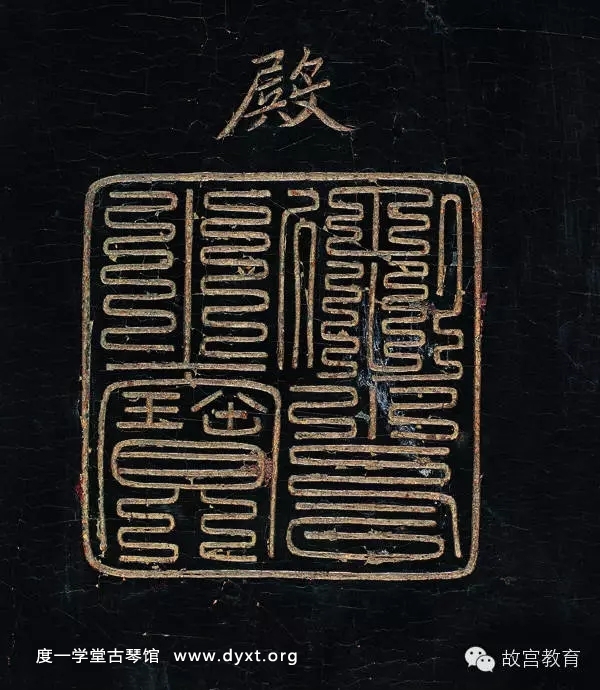 殿
御書
之寶
度一学堂古琴馆 www.dyxt.org
故宫教育